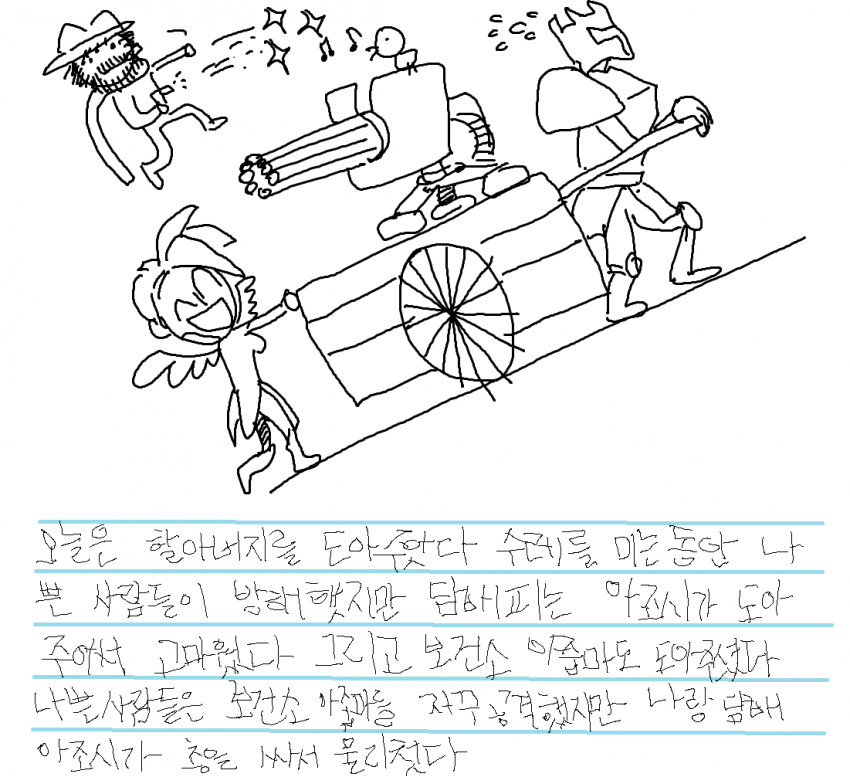 오늘은 할아버지를 도아주엇다 수레를 미는동안 나
쁜 사람들이 방래햇지만 담배피는 아조시가 도아
주어서 고마웠다 그리고 보건소 아줌마도 도아주셨다
나쁜사람들은 보건소 아줌마를 자꾸 공격했지만 나랑 담배
아조시가 총을 쏴서 물리첫다